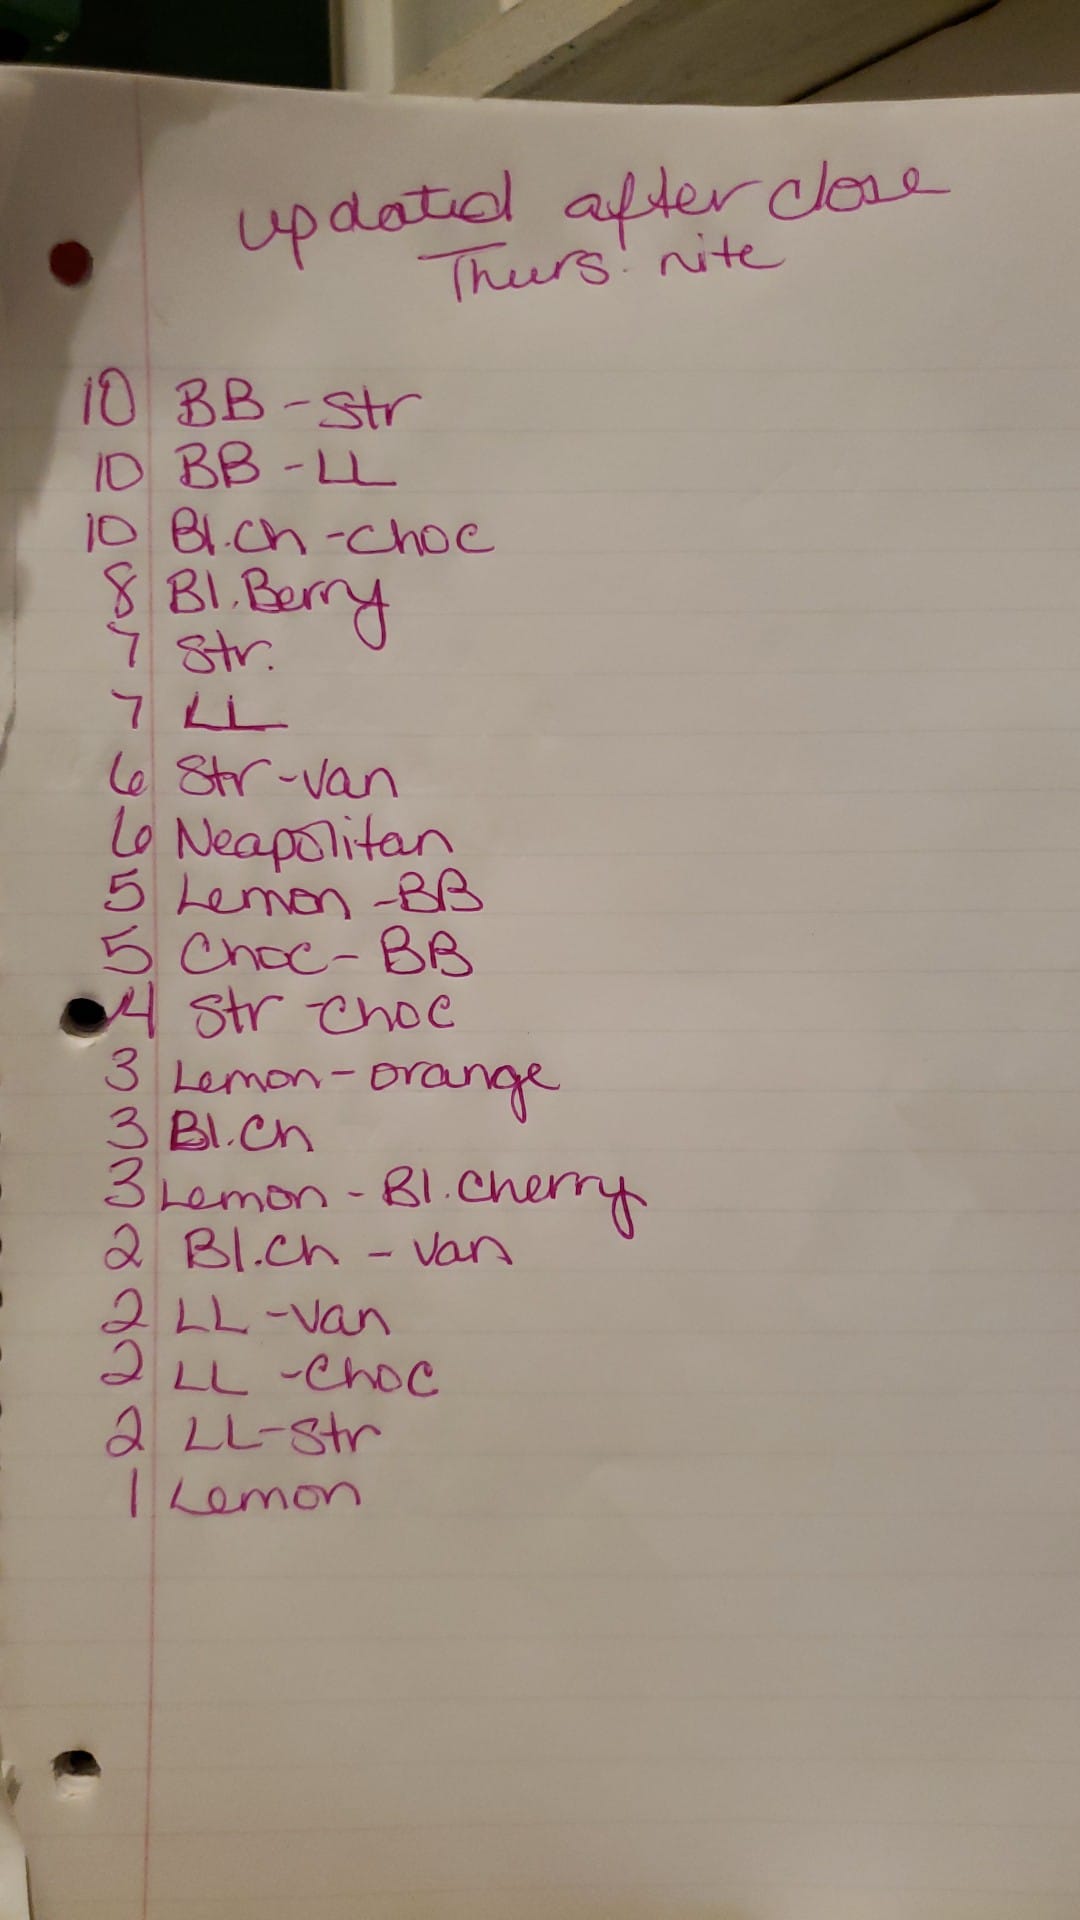 updated after close
Thurs. nite
10 BB-Str
10 BB-LL
10 Bl.Ch-choc
8 Bl.Berry
7 Str.
7 LL
6 Str-Van
6 Neapolitan
5 Lemon-BB
5 Choc-BB
4 Str-choc
3 Lemon-orange
3 Bl.Ch
3 Lemon-Bl.Cherry
2 Bl.Ch-Van
2 LL-Van
2 LL-Choc
2 LL-Str
1 Lemon